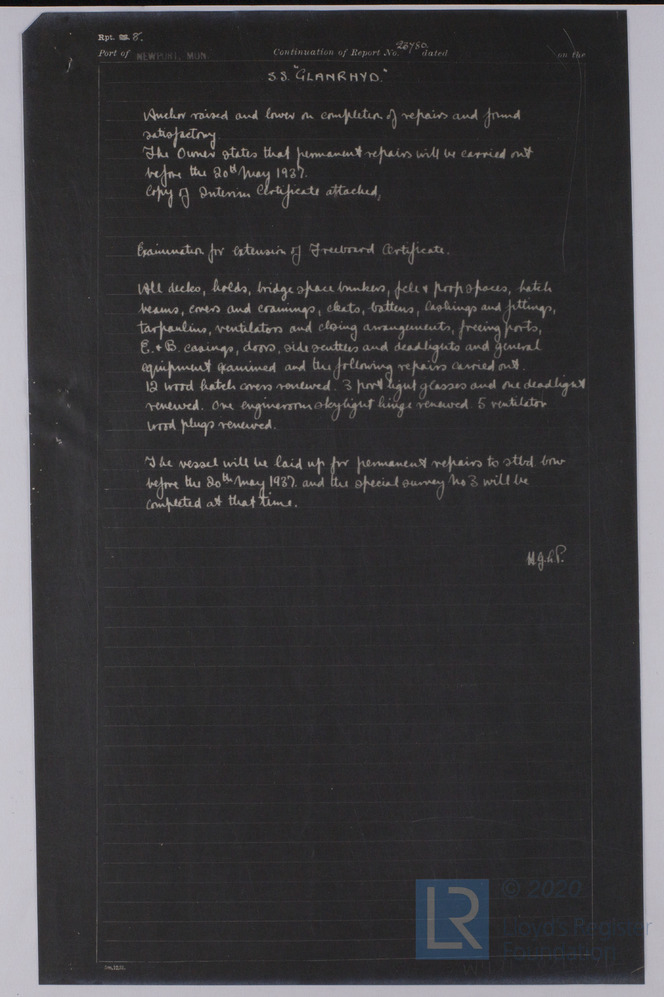 Rpt. 8.
Port of NEWPORT, MON. Continuation of Report No. 26780 dated on the
S.S. "GLANRHYD."
Anchor raised and lower on completion of repairs and found
satisfactory
The Owner states that permanent repairs will be carried out
before the 20th May 1937.
Copy of Interim Certificate attached,
Examination for extension of Freeboard Certificate.
All decks, holds, bridge space bunkers, fcle & poop spaces, hatch
beams, covers and coamings, cleats, battens, lashings and fittings,
tarpaulins, ventilators and closing arrangements, freeing ports,
E. & B. casings, doors, side scuttles and deadlights and general
equipment examined and the following repairs carried out.
12 wood hatch covers renewed. 3 port light glasses and one deadlight
renewed. One engineroom skylight hinge renewed. 5 ventilator
wood plugs renewed.
The vessel will be laid up for permanent repairs to stbd bow
before the 20th May 1937. and the special survey No 3 will be
completed at that time.
LR
© 2020
Lloyd's Register
Foundation